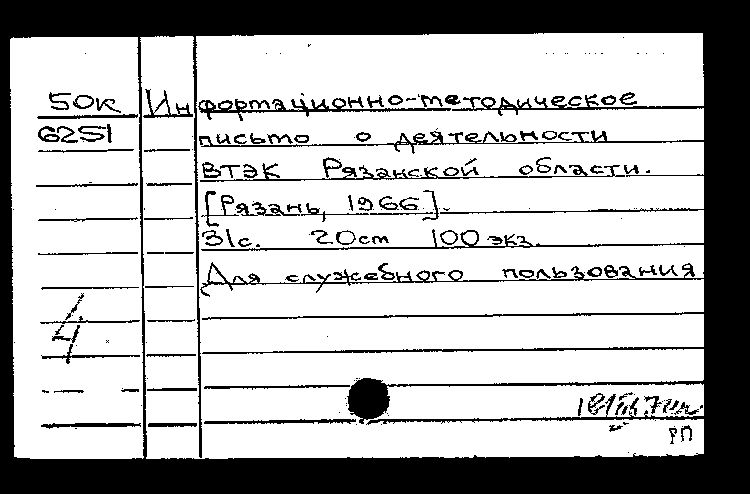 50к Информационно-методическое
6251 письмо о деятельности
ВТЭК Рязанской области.
[Рязань, 1966].
31с. 20ст 100 экз.
Для служебного пользования.
4
РП